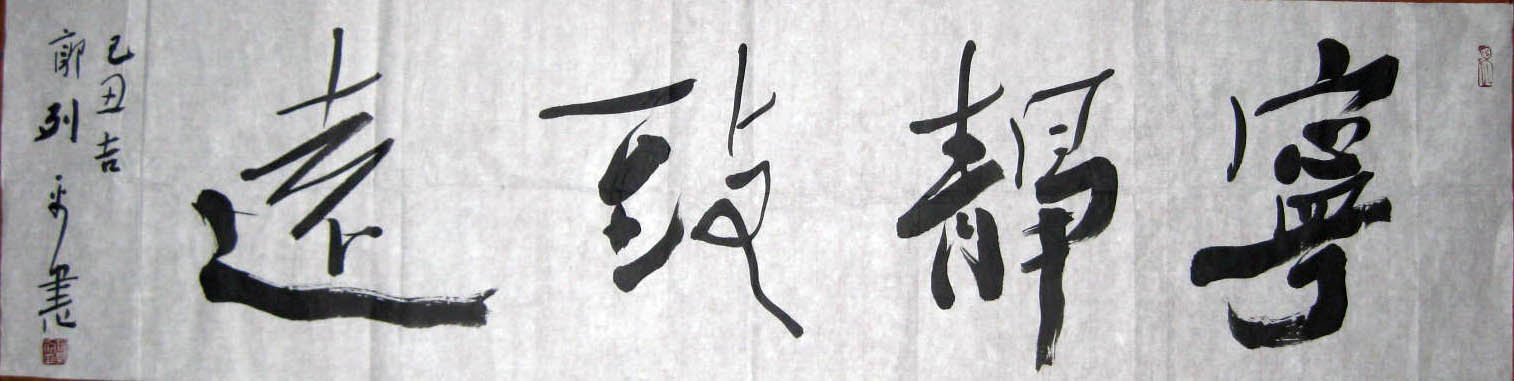 寧靜致遠
己丑吉
郭列平書